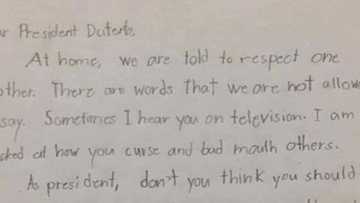 President Duterte,
At home, we are told to respect one
other. There are words that we are not allow
say. Sometimes I hear you on television. I am
cked at how you curse and bad mouth others.
As president, don't you think you should